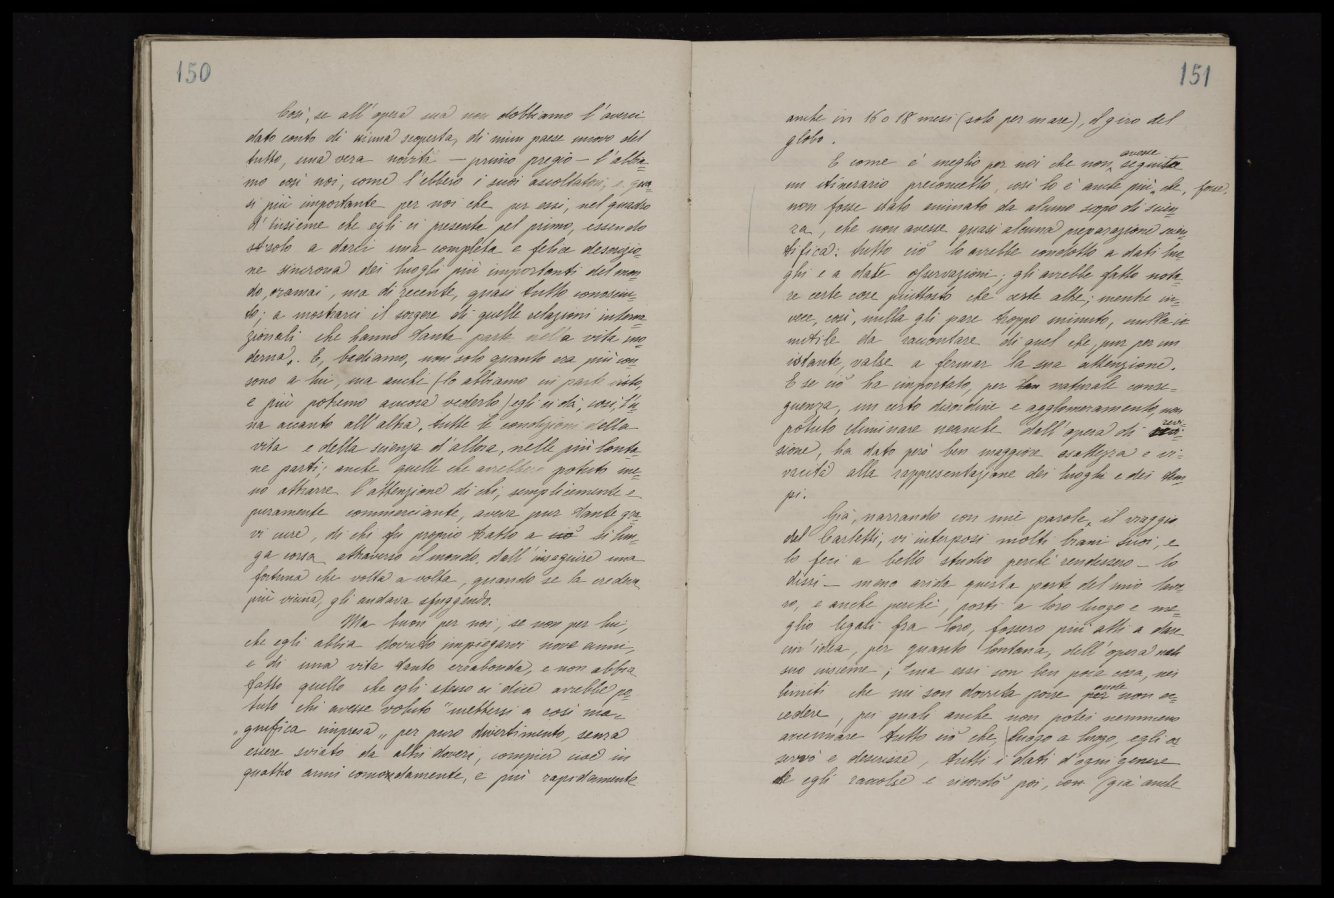 150
Così, se all'opera sua non dobbiamo l'averci
dato conto di niuna scoperta, di niun paese nuovo del
tutto, una vera novità — primo pregio — l'abbia-
mo così noi, come l'ebbero i suoi ascoltatori, e qua-
si più importante per noi che per essi, nel quadro
d'insieme che egli ci presenta pel primo, essendo
solo a darci una completa e felice descrizio-
ne sincrona dei luoghi più importanti del mon-
do, oramai, ma di recente, quasi tutto conosciu-
to; a mostrarci il sorgere di quelle relazioni interna-
zionali che hanno tanta parte nella vita mo-
derna. E, badiamo, non solo quanto era più con-
sono a lui, ma anche (lo abbiamo in parte visto,
e più potremo ancora vederlo) egli ci dà, così, l'u-
na accanto all'altra, tutte le condizioni della
vita e della scienza d'allora, nelle più lonta-
ne parti; anche quelle che avrebbero potuto me-
no attrarre l'attenzione di chi, semplicemente e
puramente commerciante, avesse pur tante gra-
vi cure, di chi fu proprio tratto a sì lun-
ga corsa attraverso il mondo, dall'inseguire una
fortuna che volta a volta, quando se la credeva
più vicina, gli andava sfuggendo.
Ma buon per noi, se non per lui,
che egli abbia dovuto impiegarvi nove anni,
e di una vita tanto errabonda, e non abbia
fatto quello che egli stesso ci dice avrebbe po-
tuto chi avesse voluto "mettersi a così ma-
"gnifica impresa„ per puro divertimento, senza
essere sviato da altri doveri, compier cioè in
quattro anni comodamente, e più rapidamente
151
anche in 16 o 18 mesi (solo per mare), il giro del
globo.
E come è meglio per noi che non avesse seguito
un itinerario preconcetto, così lo è anche più, che, forse,
non fosse stato animato da alcuno scopo di scien-
za, che non avesse quasi alcuna preparazione scien-
tifica: tutto ciò lo avrebbe condotto a dati luo-
ghi e a date osservazioni; gli avrebbe fatto nota-
re certe cose piuttosto che certe altre; mentre in-
vece, così, nulla gli pare troppo minuto, nulla
inutile da raccontare di quel che, pur per un
istante, valse a fermar la sua attenzione.
E se ciò ha importato, per naturale conse-
guenza, un certo disordine e agglomeramento, non
potuto eliminare neanche dall'opera di revi-
sione, ha dato però ben maggiore esattezza e vi-
vacità alla rappresentazione dei luoghi e dei tem-
pi.
Già, narrando con mie parole, il viaggio
del Carletti, vi interposi molti brani suoi, e
lo feci a bello studio perchè rendessero — lo
dissi — meno arida questa parte del mio lavo-
ro, e anche perchè, posti a loro luogo e me-
glio legati fra loro, fossero più atti a dare
un'idea, per quanto lontana, dell'opera nel
suo insieme; ma essi son ben poca cosa, nei
limiti che mi son dovuto porre onde non ec-
cedere, pei quali anche non potei nemmeno
accennare tutto ciò che luogo a luogo, egli os-
servò e descrisse, tutti i dati d'ogni genere
che egli raccolse e ricordò poi, con (già anche